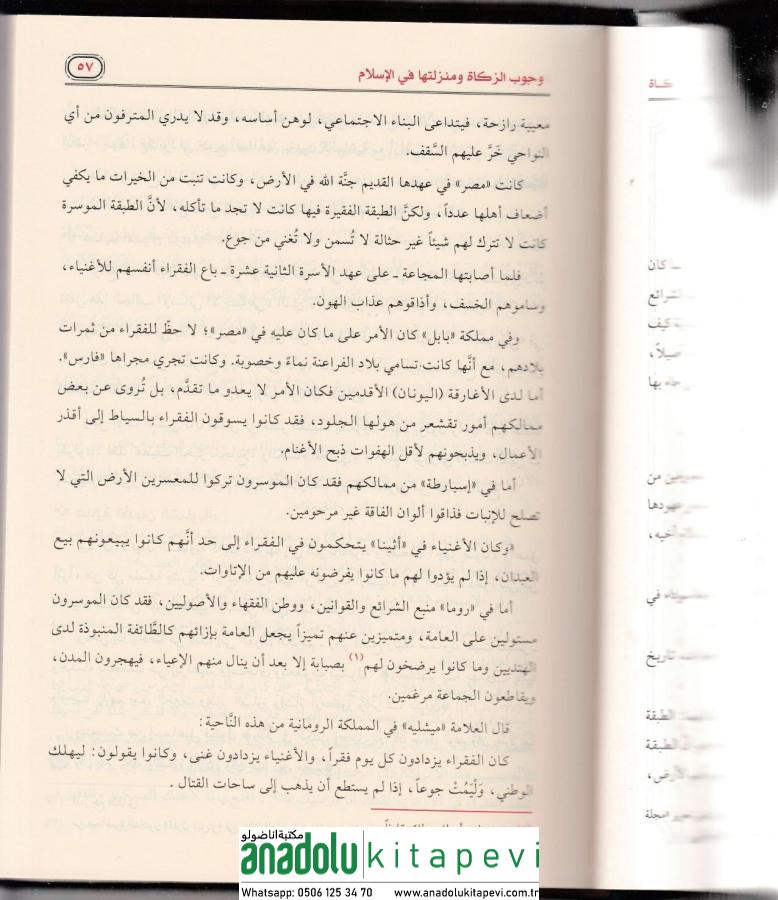 وجوب الزكاة ومنزلتها في الإسلام
٥٧
معيبة رازحة، فيتداعى البناء الاجتماعي، لوهن أساسه، وقد لا يدري المترفون من أي
النواحي خَرَّ عليهم السَّقف.
كانت «مصر» في عهدها القديم جنَّة الله في الأرض، وكانت تنبت من الخيرات ما يكفي
أضعاف أهلها عدداً، ولكنَّ الطبقة الفقيرة فيها كانت لا تجد ما تأكله، لأنَّ الطبقة الموسرة
كانت لا تترك لهم شيئاً غير حثالة لا تُسمن ولا تُغني من جوع.
فلما أصابتها المجاعة ـ على عهد الأسرة الثانية عشرة ـ باع الفقراء أنفسهم للأغنياء،
وساموهم الخسف، وأذاقوهم عذاب الهون.
وفي مملكة «بابل» كان الأمر على ما كان عليه في «مصر»؛ لا حظّ للفقراء من ثمرات
بلادهم، مع أنَّها كانت تسامي بلاد الفراعنة نماءً وخصوبة. وكانت تجري مجراها «فارس».
أما لدى الأغارقة (اليونان) الأقدمين فكان الأمر لا يعدو ما تقدَّم، بل تُروى عن بعض
ممالكهم أمور تقشعر من هولها الجلود، فقد كانوا يسوقون الفقراء بالسياط إلى أقذر
الأعمال، ويذبحونهم لأقل الهفوات ذبح الأغنام.
أما في «إسبارطة» من ممالكهم فقد كان الموسرون تركوا للمعسرين الأرض التي لا
تصلح للإنبات فذاقوا ألوان الفاقة غير مرحومين.
«وكان الأغنياء في «أثينا» يتحكمون في الفقراء إلى حد أنَّهم كانوا يبيعونهم بيع
العبدان، إذا لم يؤدوا لهم ما كانوا يفرضونه عليهم من الإتاوات.
أما في «روما» منبع الشرائع والقوانين، ووطن الفقهاء والأصوليين، فقد كان الموسرون
مستولين على العامة، ومتميزين عنهم تميزاً يجعل العامة بإزائهم كالطَّائفة المنبوذة لدى
الهنديين وما كانوا يرضخون لهم(١) بصبابة إلا بعد أن ينال منهم الإعياء، فيهجرون المدن،
ويقاطعون الجماعة مرغمين.
قال العلامة «ميشليه» في المملكة الرومانية من هذه النَّاحية:
كان الفقراء يزدادون كل يوم فقراً، والأغنياء يزدادون غنى، وكانوا يقولون: ليهلك
الوطني، وَلْيَمُتْ جوعاً، إذا لم يستطع أن يذهب إلى ساحات القتال.
مكتبة اناضولو
anadolu kitapevi
Whatsapp: 0506 125 34 70 www.anadolukitapevi.com.tr